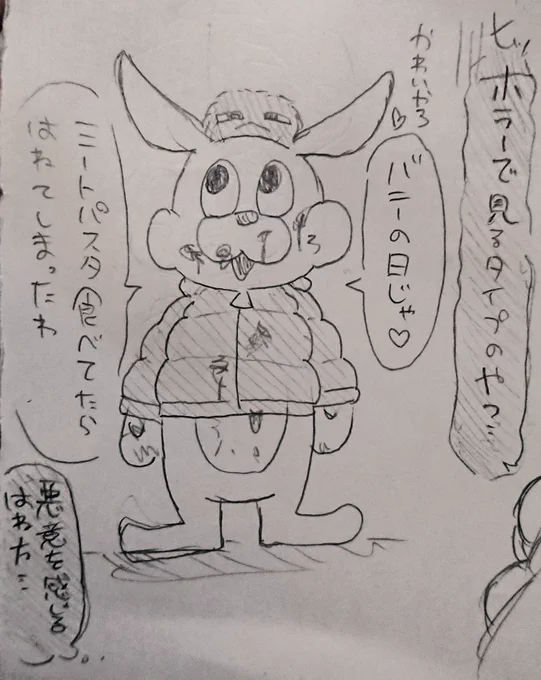 ヒッ
ホラーで見るタイプのやつ…
かわいかろ♡
バニーの日じゃ♡
ミートパスタ食べてたら
はねてしまったわ
悪意を感じる
はね方…